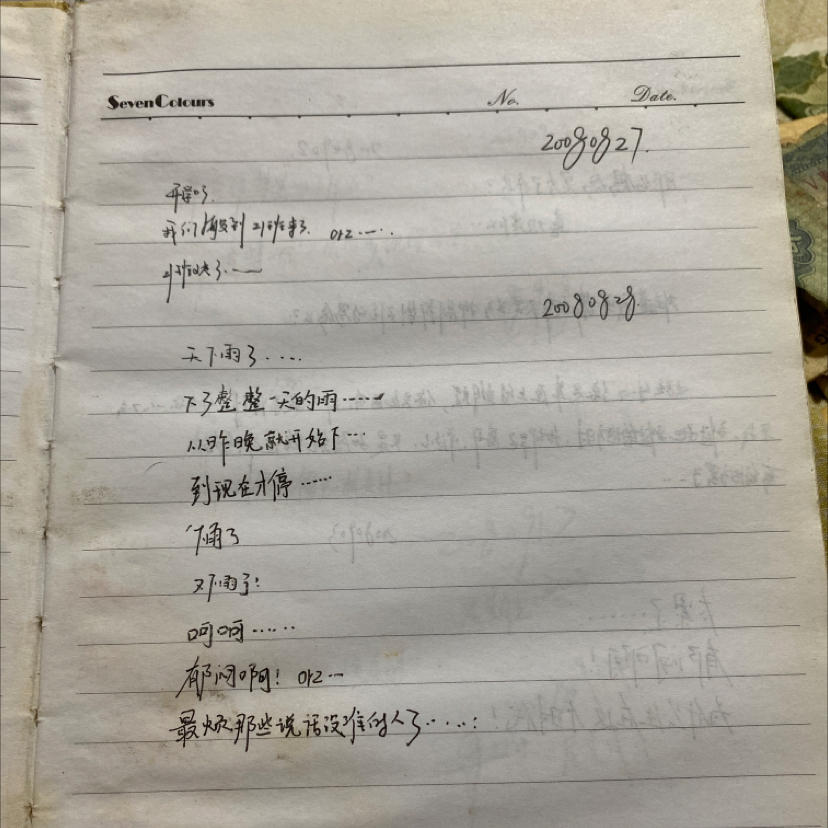 Seven Colours No. Date.
20080827.
开学了.
我们搬到 21班来了. orz.....
21班的人了.....
20080828.
天下雨了....
下了整整一天的雨......
从昨晚就开始下...
到现在才停......
下雨了
又下雨了!
呵呵......
郁闷啊! orz...
最烦那些说话没准的人了.....